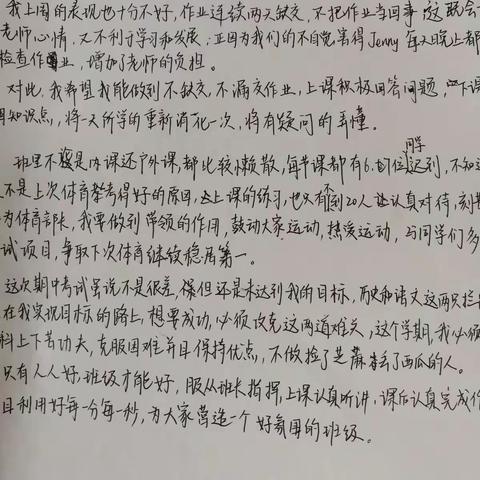 我上周的表现也十分不好,作业连续两天缺交,不把作业当回事,这既会
老师心情,又不利于学习和发展;正因为我们的不自觉害得Jenny每天晚上都
检查作业,增加了老师的负担。
对此,我希望我能做到不缺交,不漏交作业,上课积极回答问题,下课
固知识点,将一天所学的重新消化一次,将有疑问的弄懂。
班里不是内课还户外课,都比较懒散,每节课都有6.7位同学迟到,不知
不是上次体育考得好的原因,上课的练习,也只有不到20人认真对待,
为体育,我要做到带领的作用,鼓动大家运动,热爱运动,与同学们多
试项目,争取下次体育继续稳居第一。
这次期中考试虽说不是很差,但还是未达到我的目标,历史和语文这两只拦
在我实现目标的路上,想要成功,必须攻克这两道难关,这个学期,我必须
科上下苦功夫,克服困难并且保持优点,不做捡了芝麻丢了西瓜的人。
只有人人好,班级才能好,服从班长指挥,上课认真听讲,课后认真完成作
且利用好每一分每一秒,为大家营造一个好氛围的班级。